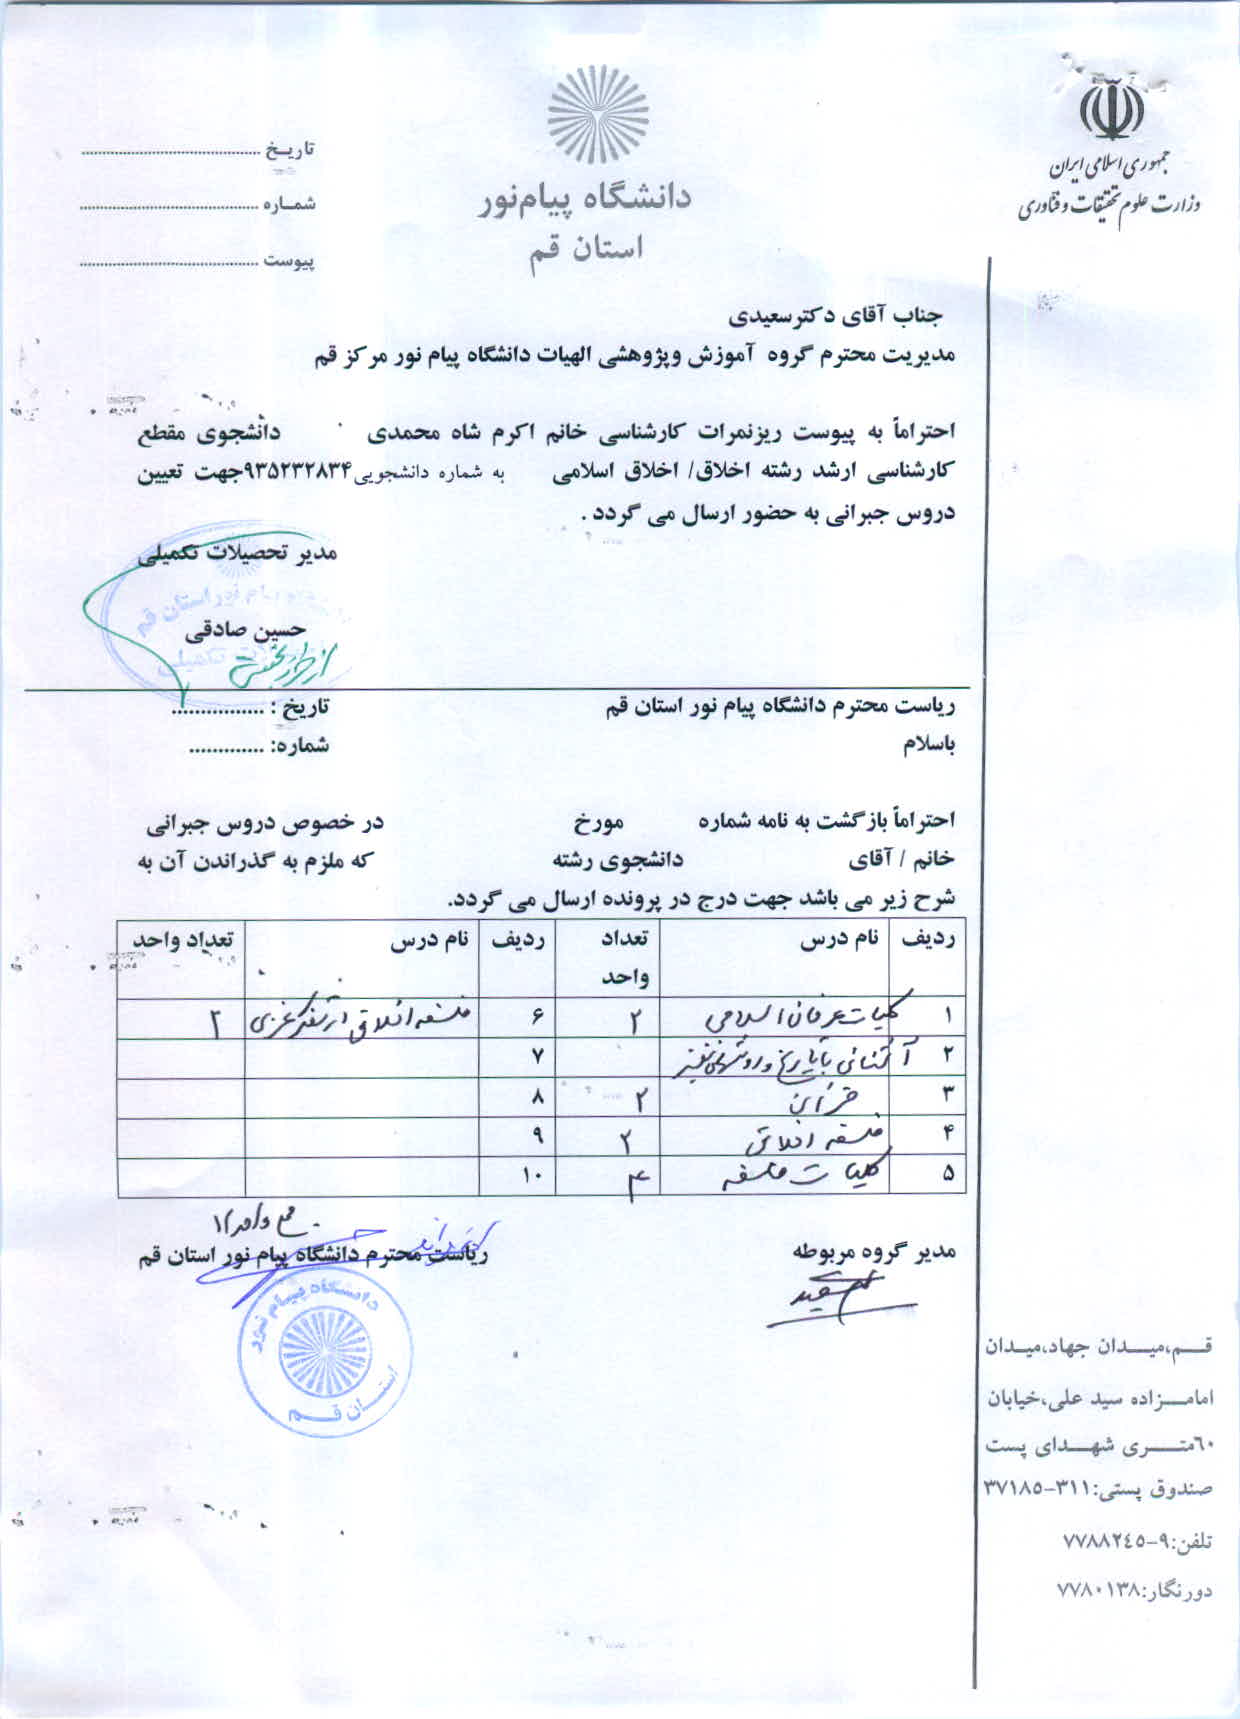 جمهوری اسلامی ایران
وزارت علوم تحقیقات و فناوری
دانشگاه پیام‌نور
استان قم
تاریـخ ........................................
شمـاره ........................................
پیوست ........................................
جناب آقای دکترسعیدی
مدیریت محترم گروه آموزش وپژوهشی الهیات دانشگاه پیام نور مرکز قم
احتراماً به پیوست ریزنمرات کارشناسی خانم اکرم شاه محمدی دانشجوی مقطع
کارشناسی ارشد رشته اخلاق/ اخلاق اسلامی به شماره دانشجویی۹۳۵۲۳۲۸۳۴جهت تعیین
دروس جبرانی به حضور ارسال می گردد .
مدیر تحصیلات تکمیلی
حسین صادقی
ریاست محترم دانشگاه پیام نور استان قم تاریخ : ................
باسلام شماره: .............
احتراماً بازگشت به نامه شماره مورخ در خصوص دروس جبرانی
خانم / آقای دانشجوی رشته که ملزم به گذراندن آن به
شرح زیر می باشد جهت درج در پرونده ارسال می گردد.
ردیف نام درس تعداد واحد ردیف نام درس تعداد واحد
۱ کلیات عرفان اسلامی ۲ ۶ فلسفه اخلاق از تفکر غربی ۲
۲ آشنائی با تاریخ و روشهای تفسیر ۷
۳ قرآن ۲ ۸
۴ فلسفه اخلاق ۲ ۹
۵ کلیات فلسفه ۴ ۱۰
جمع واحد ۱۲
مدیر گروه مربوطه ریاست محترم دانشگاه پیام نور استان قم
سعیدی
دانشگاه پیـام نـور
استــان قــم
قــم،میــدان جهاد،میـدان
امامــزاده سید علی،خیابان
۶۰متــری شهــدای پست
صندوق پستی:۳۱۱-۳۷۱۸۵
تلفن:۹-۷۷۸۸۲۴۵
دورنگار:۷۷۸۰۱۳۸